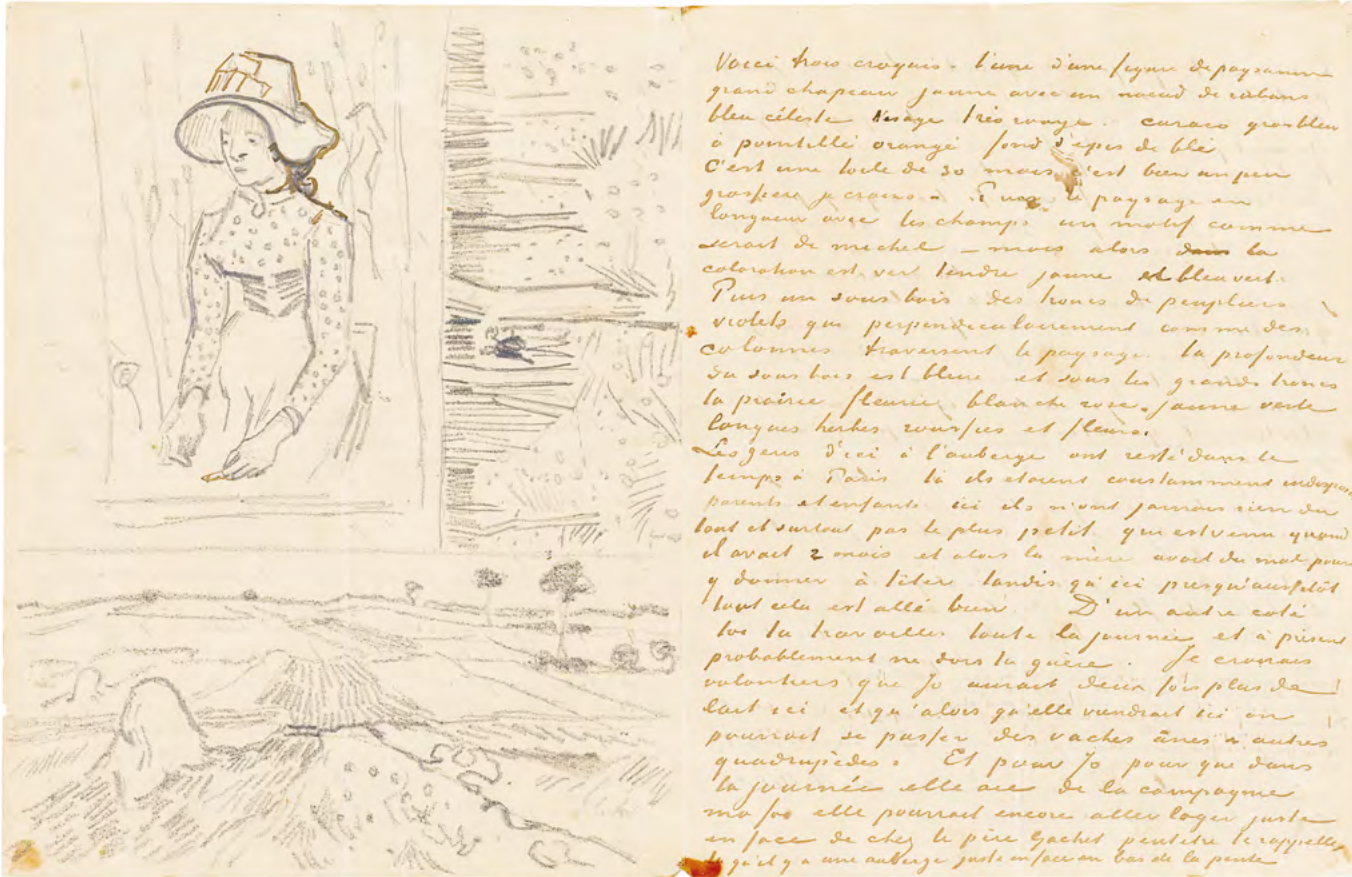 Voici trois croquis – l'une d'une figure de paysanne
grand chapeau jaune avec un nœud de rubans
bleu céleste visage très rouge. caraco gros bleu
à pointillé orangé fond d'épis de blé
C'est une toile de 30 mais c'est bien un peu
grossière je crains – Puis le paysage en
longueur avec les champs un motif comme
serait de michel – mais alors la
coloration est ver tendre jaune et bleu vert.
Puis un sous bois des troncs de peupliers
violets qui perpendiculairement comme des
colonnes traversent le paysage. la profondeur
du sous bois est bleue et sous les grands troncs
la prairie fleurie blanche rose, jaune verte
longues herbes roussies et fleurs.
Les gens d'ici à l'auberge ont resté dans le
temps à Paris là ils etaient constamment
parents et enfants ici ils n'ont jamais rien du
tout et surtout pas le plus petit qui est venu quand
il avait 2 mois et alors la mère avait du mal pour
y donner à têter tandis qu'ici presqu'aussitôt
tout cela est allé bien. D'un autre coté
toi tu travailles toute la journée et à présent
probablement ne dors tu guère. Je croirais
volontiers que Jo aurait deux fois plus de
lait ici et qu'alors qu'elle viendrait ici on
pourrait se passer des vaches ânes & autres
quadrupèdes. Et pour Jo pour que dans
la journée elle aie de la compagnie
ma foi elle pourrait encore aller loger juste
en face de chez le père Gachet peutetre te rappelles
tu qu'il y a une auberge juste en face au bas de la pente